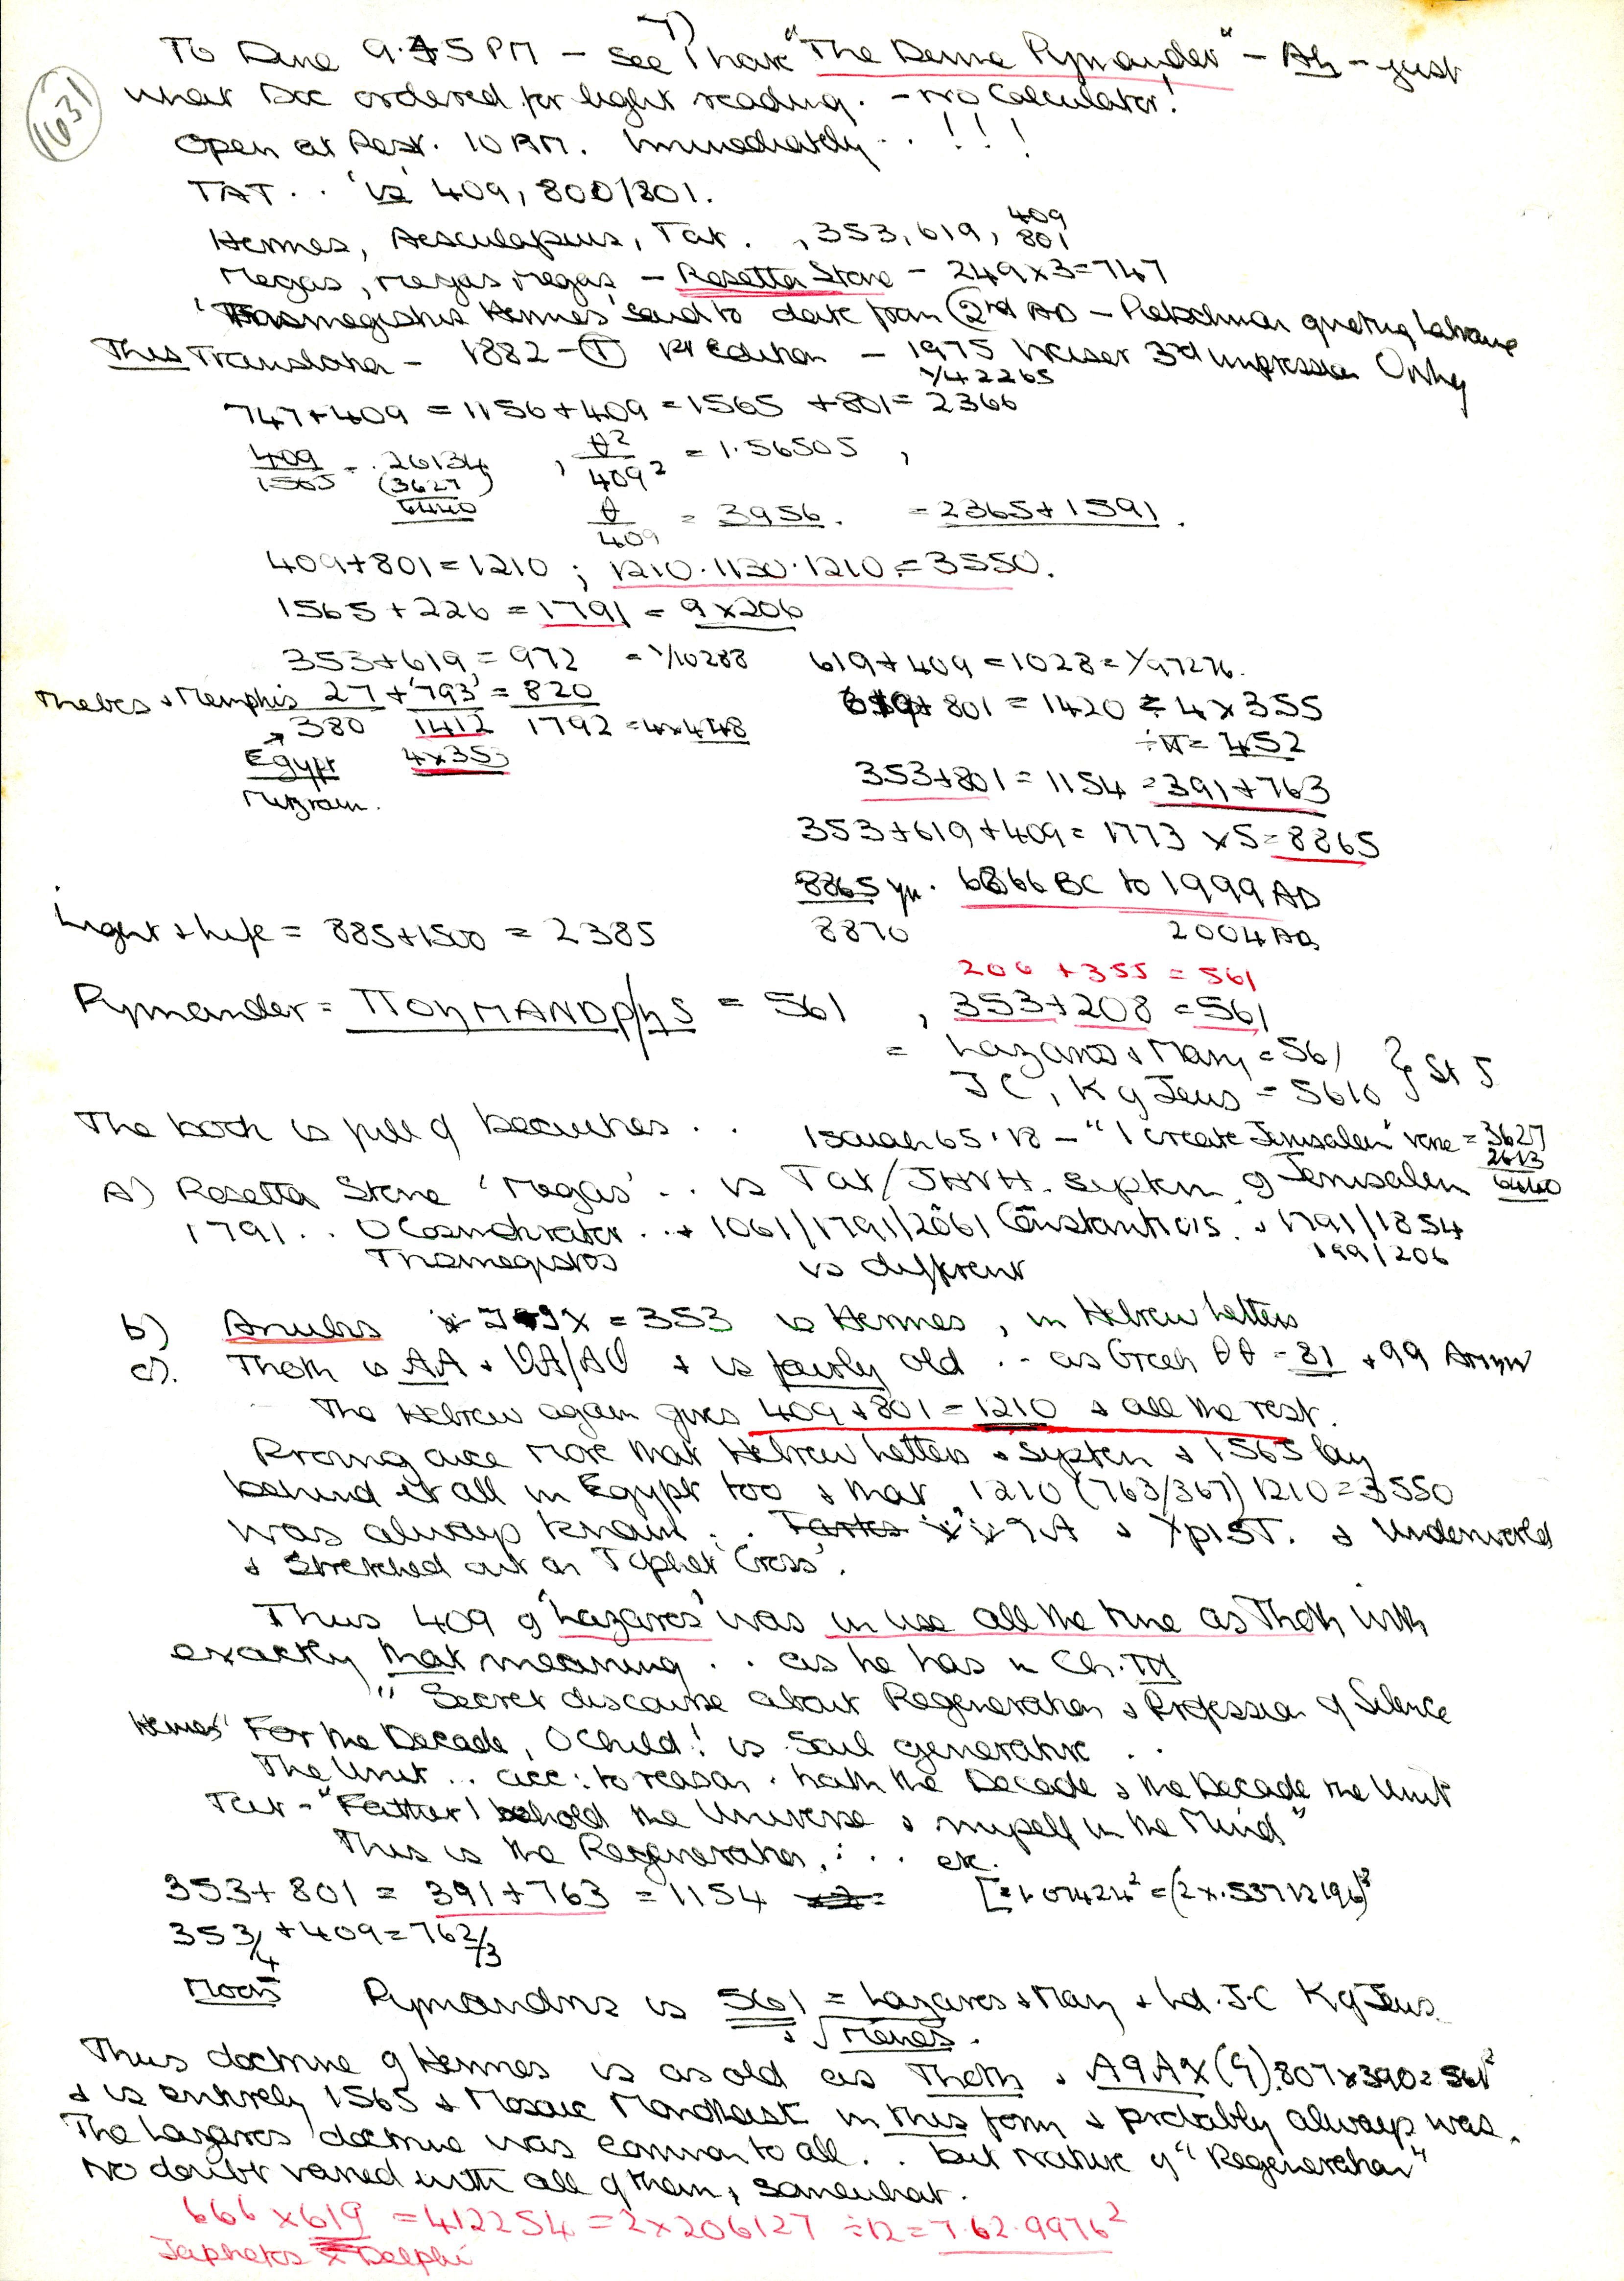 7)
1631
To Dave 9.45 PM – See I have "The Divine Pymander" – Ah – just
what Doc ordered for light reading. – no Calculator!
Open at Rest. 10 AM. Immediately . . ! ! !
TAT . . 'is' 409, 800/801.
Hermes, Aesculapius, Tat. , 353, 619, 409 801
Megas, megas megas – Rosetta Stone – 249 x 3 = 747
'Trismegistus Hermes' said to date from 2nd AD – quoting
This Translation – 1882 – 1st Edition – 1975 Weiser 3rd impression Only
1/42265
747 + 409 = 1156 + 409 = 1565 + 801 = 2366
409/1565 = .26134 , θ²/409² = 1.56505 ,
(3627)
6440
θ/409 = 3956. = 2365 + 1591.
409 + 801 = 1210 ; 1210 . 1130 . 1210 = 3550.
1565 + 226 = 1791 = 9 x 206
353 + 619 = 972 = 1/10288 619 + 409 = 1028 = 1/97276.
Thebes + Memphis 27 + '793' = 820 619 + 801 = 1420 = 4 x 355
380 1412 1792 = 4 x 448 ÷ π = 452
Egypt 4 x 353
Mizraim.
353 + 801 = 1154 = 391 + 763
353 + 619 + 409 = 1773 x 5 = 8865
8865 yr. 6866 BC to 1999 AD
Light + Life = 885 + 1500 = 2385 8870 2004 AD
206 + 355 = 561
Pymander = ΠΟηΜΑΝDρ/ηS = 561 , 353 + 208 = 561
= Lazaros + Mary = 561
J C, K of Jews = 5610 } St J
The book is full of beauties . . Isaiah 65.18 – "I create Jerusalem" verse = 3627
2813
6440
A) Rosetta Stone 'Megas' . . is Tat/JHVH. system of Jerusalem
1791 . . O Cosmokrator . . + 1061/1791/2061 Constantinus. + 1791/1854
Trismegistos is different 199/206
b) Anubis = 353 is Hermes, in Hebrew letters
c). Thoth is AA + + is fairly old . . as Greek θθ = 81 + 99 Amen
The Hebrew again gives 409 + 801 = 1210 + all the rest.
Proving once more that Hebrew letters + system + 1565 lay
behind it all in Egypt too + that 1210 (763/367) 1210 = 3550
was always known . . + ΧριST. + Underworld
+ Stretched out on 'Tophet Cross'.
Thus 409 of 'Lazaros' was in use all the time as Thoth with
exactly that meaning . . as he has in Ch.
"Secret discourse about Regeneration + Profession of Silence
Hermes "For the Decade, O Child! is Soul generative . .
The Unit . . acc: to reason . hath the Decade + the Decade the Unit
Tat – "Father I behold the Universe + myself in the Mind"
This is the Regeneration . : . . etc.
353 + 801 = 391 + 763 = 1154 [=1.07424² = (2 x .53712196)²
353/4 + 409 = 762/3
Moses Pymandros is 561 = Lazaros + Mary + Ld. J.C K of Jews.
+ √Menes.
Thus doctrine of Hermes is as old as Thoth + A9AX (9).807 x 390 = 561²
+ is entirely 1565 + Mosaic Monotheist in this form + probably always was.
The Lazaros doctrine was common to all . . but nature of "Regeneration"
No doubt varied with all of them, somewhat.
666 x 619 = 412254 = 2 x 206127 ÷ 12 = 7.62.9976²
Japhetos x Delphi